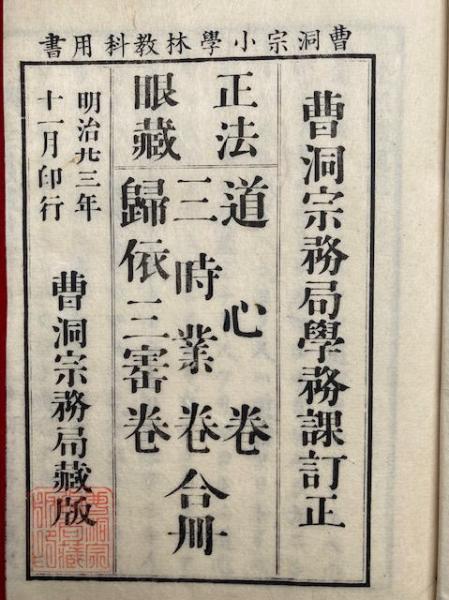 曹洞宗小學林教科用書
曹洞宗務局學務課訂正
正法
眼藏
道心卷
三時業卷合冊
歸依三寚卷
明治廿三年
十一月印行
曹洞宗務局藏版